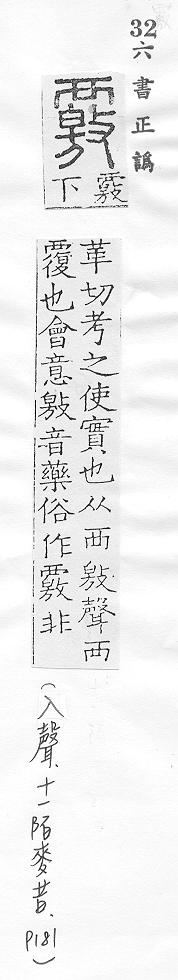 32六書正譌
覈
覈
下
革切考之使實也从襾敫聲襾
覆也會意敫音藥俗作覈非
(入聲、十一陌麥昔、P181)